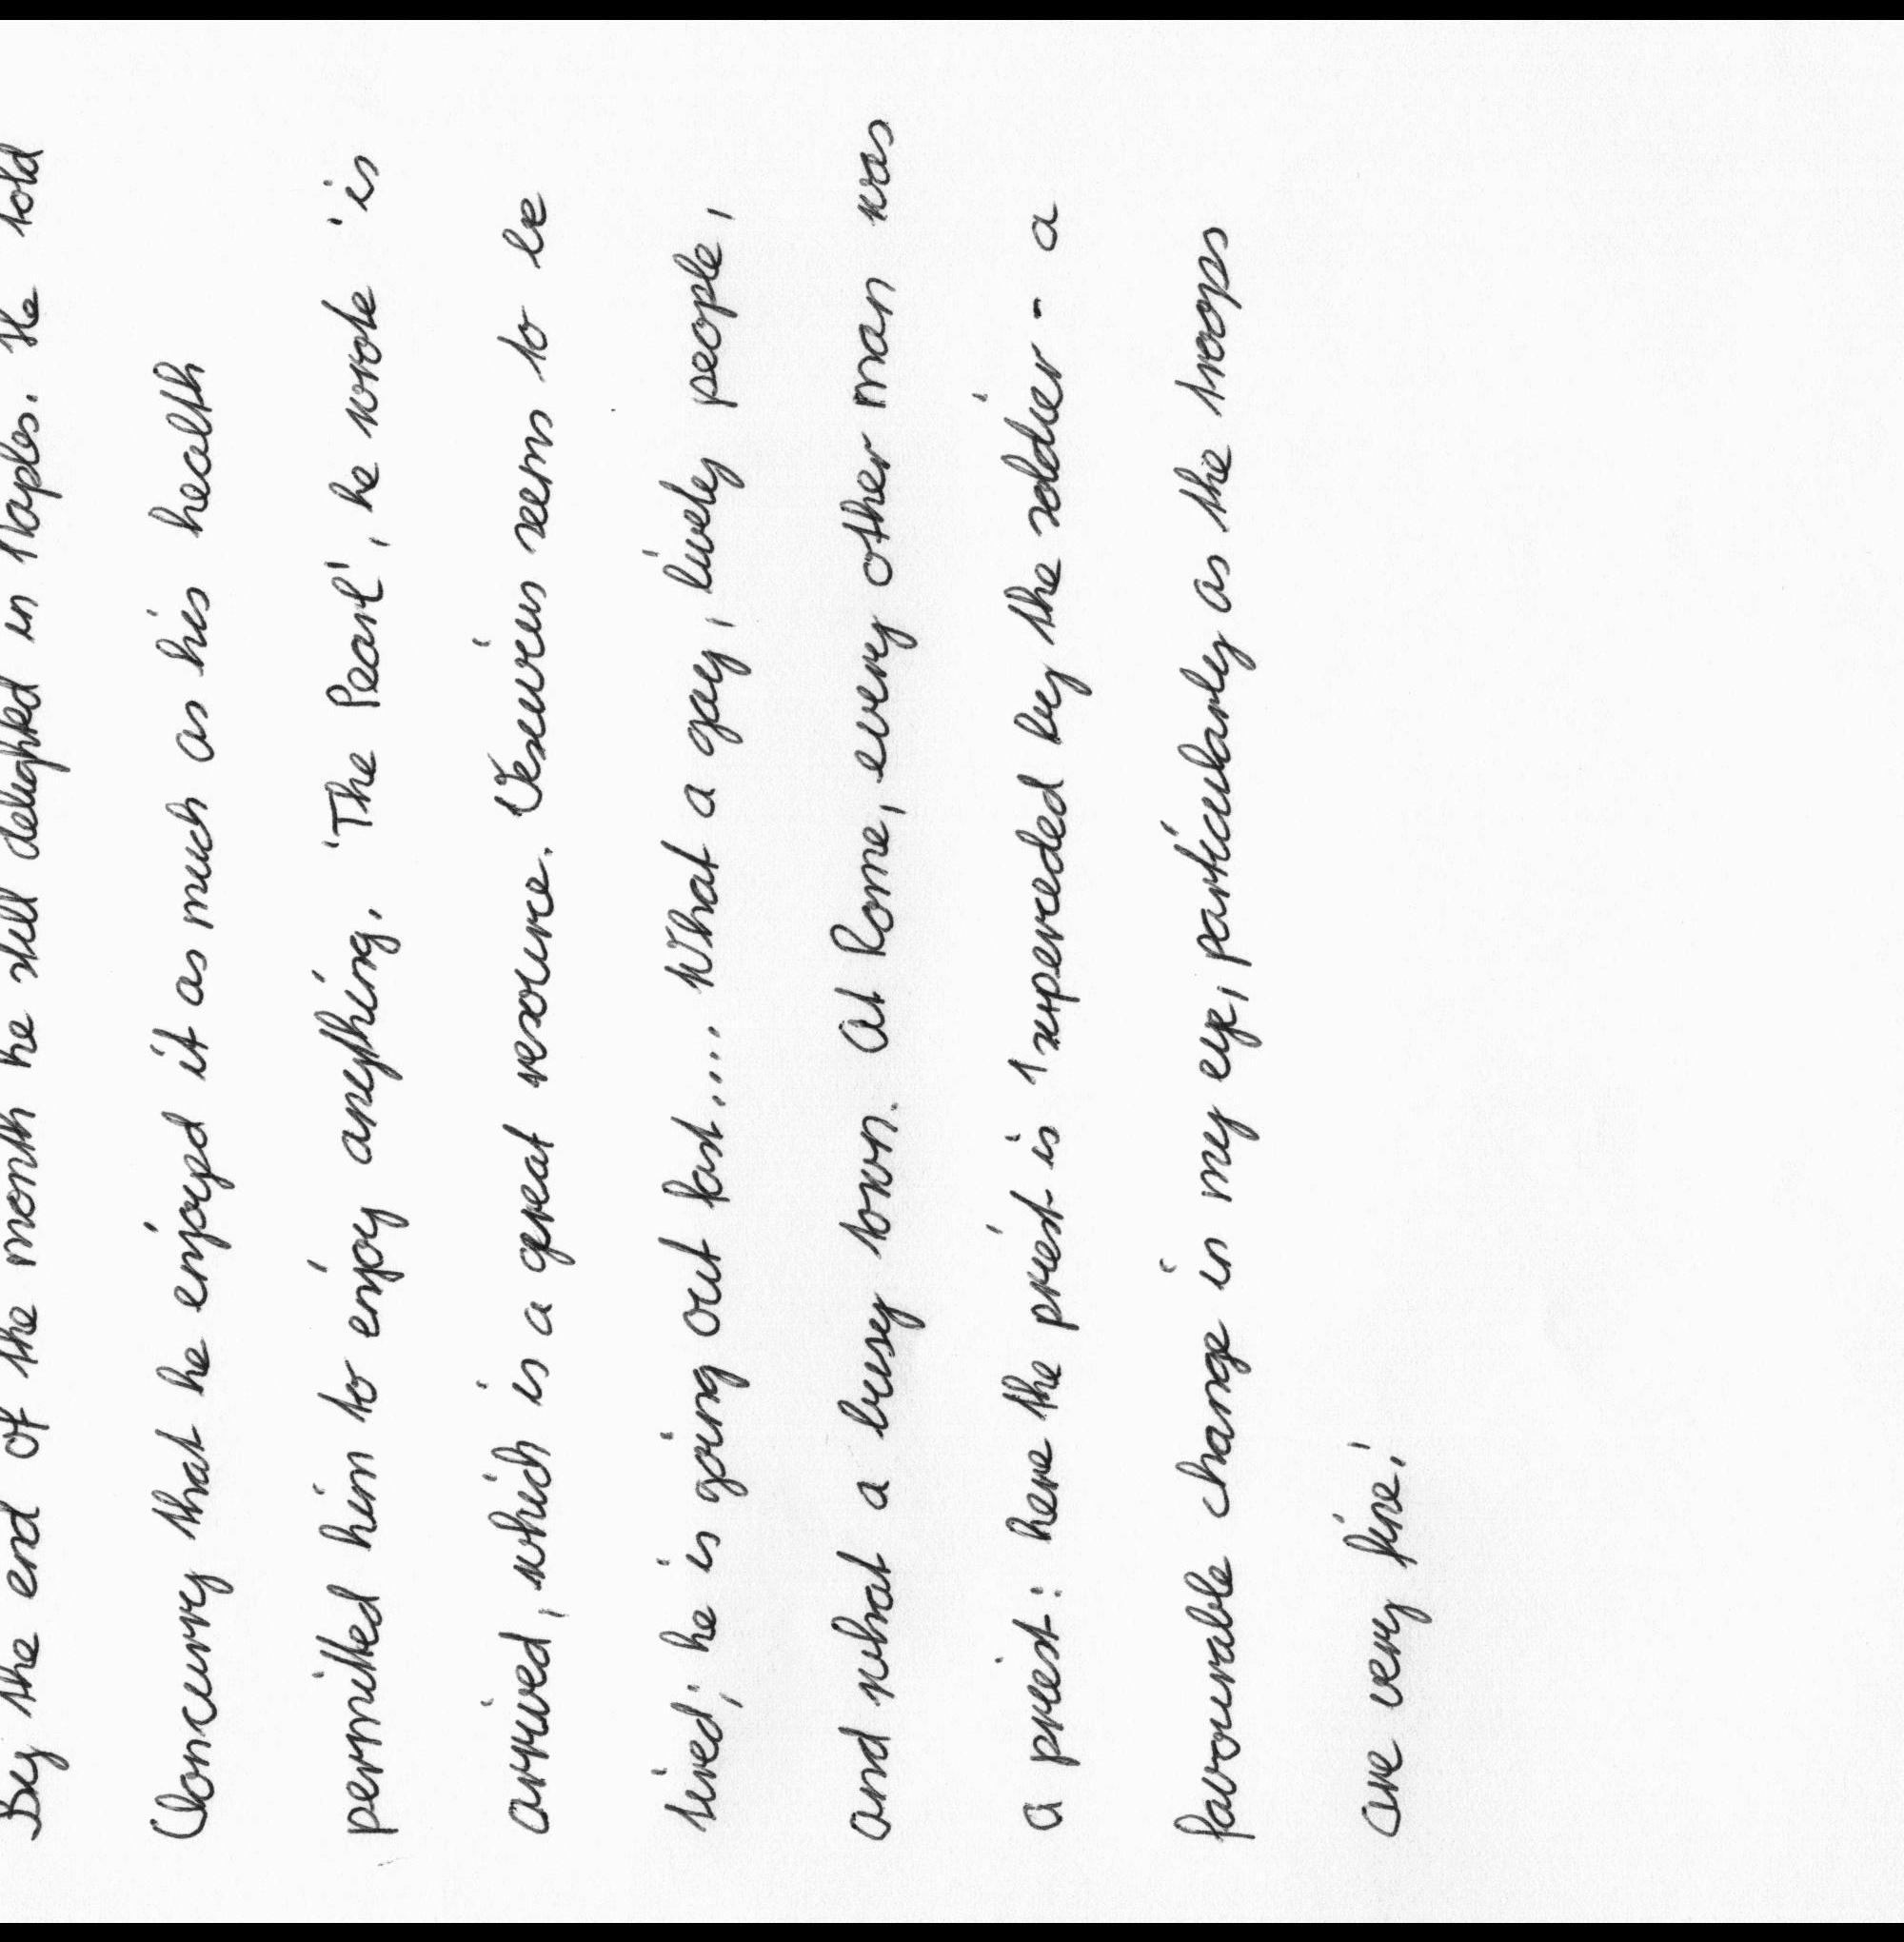 By the end of the month he still delighted in Naples. He told
Concurry that he enjoyed it as much as his health
permitted him to enjoy anything. 'The Pearl', he wrote 'is
arrived, which is a great resource. Vesuvius seems to be
tired; he is going out fast.... What a gay, lively people,
and what a busy town. At Rome, every other man was
a priest: here the priest is superceded by the soldier - a
favourable change in my eye, particularly as the troops
are very fine.'